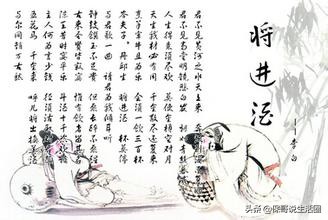 将进酒
——李白
君不见黄河之水天上来 奔流
君不见高堂明镜悲白发 朝
人生得意须尽欢 莫使金樽空对月
天生我材必有用 千金散尽还复来
烹羊宰牛且为乐 会须一饮三百杯
岑夫子 丹邱生 将进酒 杯莫停
与君歌一曲 请君为我倾耳听
钟鼓馔玉不足贵 但愿长醉不愿醒
古来圣贤皆寂寞 惟有饮者留其名
陈王昔时宴平乐 斗酒十千恣欢谑
主人何为言少钱 径须沽取对君酌
五花马 千金裘 呼儿将出换美酒
与尔同销万古愁
头条 @保哥说生活圈